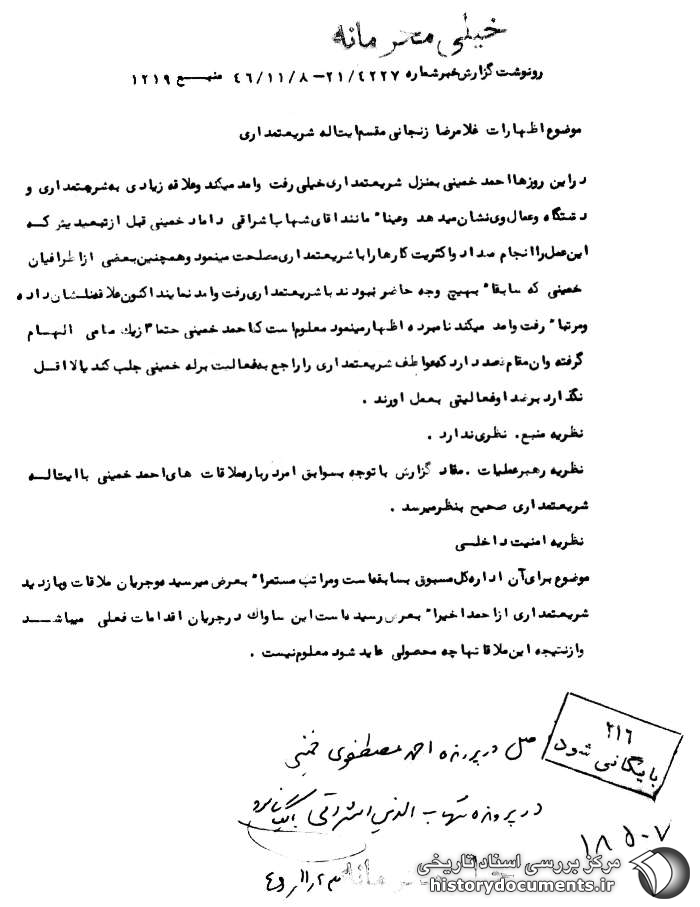 خیلی محرمانه
رونوشت گزارش خبر شماره ۲۱/۴۲۲۷ – ۴۶/۱۱/۸ منبع ۱۲۱۹
موضوع اظهارات غلامرضا زنجانی مقسم ایتاله شریعتمداری
در این روزها احمد خمینی بمنزل شریعتمداری خیلی رفت وامد میکند وعلاقه زیادی به شریعتمداری و
دستگاه وعمال وی نشان میدهد وعینا" مانند اقای شهاب اشراقی داماد خمینی قبل از تبعید پدر که
این عمل را انجام میداد واکثریت کارها را با شریعتمداری مصلحت مینمود وهمچنین بعضی از اطرافیان
خمینی که سابقا" بهیچ وجه حاضر نبودند با شریعتمداری رفت وامد نمایند اکنون علاقه نشان داده
ومرتبا" رفت وامد میکند نامبرده اظهار مینمود معلوم است که احمد خمینی حتما" از یک مقامی الهام
گرفته وان مقام قصد دارد که عواطف شریعتمداری را راجع به فعالیت برله خمینی جلب کند یا لااقل
نگذارد برضد او فعالیتی بعمل اورند .
نظریه منبع . نظری ندارد .
نظریه رهبر عملیات . مفاد گزارش با توجه بسوابق امر درباره ملاقات های احمد خمینی با ایتاله
شریعتمداری صحیح بنظر میرسد .
نظریه امنیت داخلی
موضوع برای آن اداره کل مسبوق بسابقه است ومراتب مستمرا" بعرض میرسید و جریان ملاقات وبازدید
شریعتمداری از احمد اخیرا" بعرض رسیده است این ساواک در جریان اقدامات فعلی میباشد
واز نتیجه این ملاقاتها چه محصولی عاید شود معلوم نیست .
۲۱۶
بایگانی شود
اصل در پرونده احمد مصطفوی خمینی
در پرونده شهاب الدین اشراقی بایگانی شود
۱۸۵۰۷
خیلی محرمانه
مرکز بررسی اسناد تاریخی
historydocuments.ir